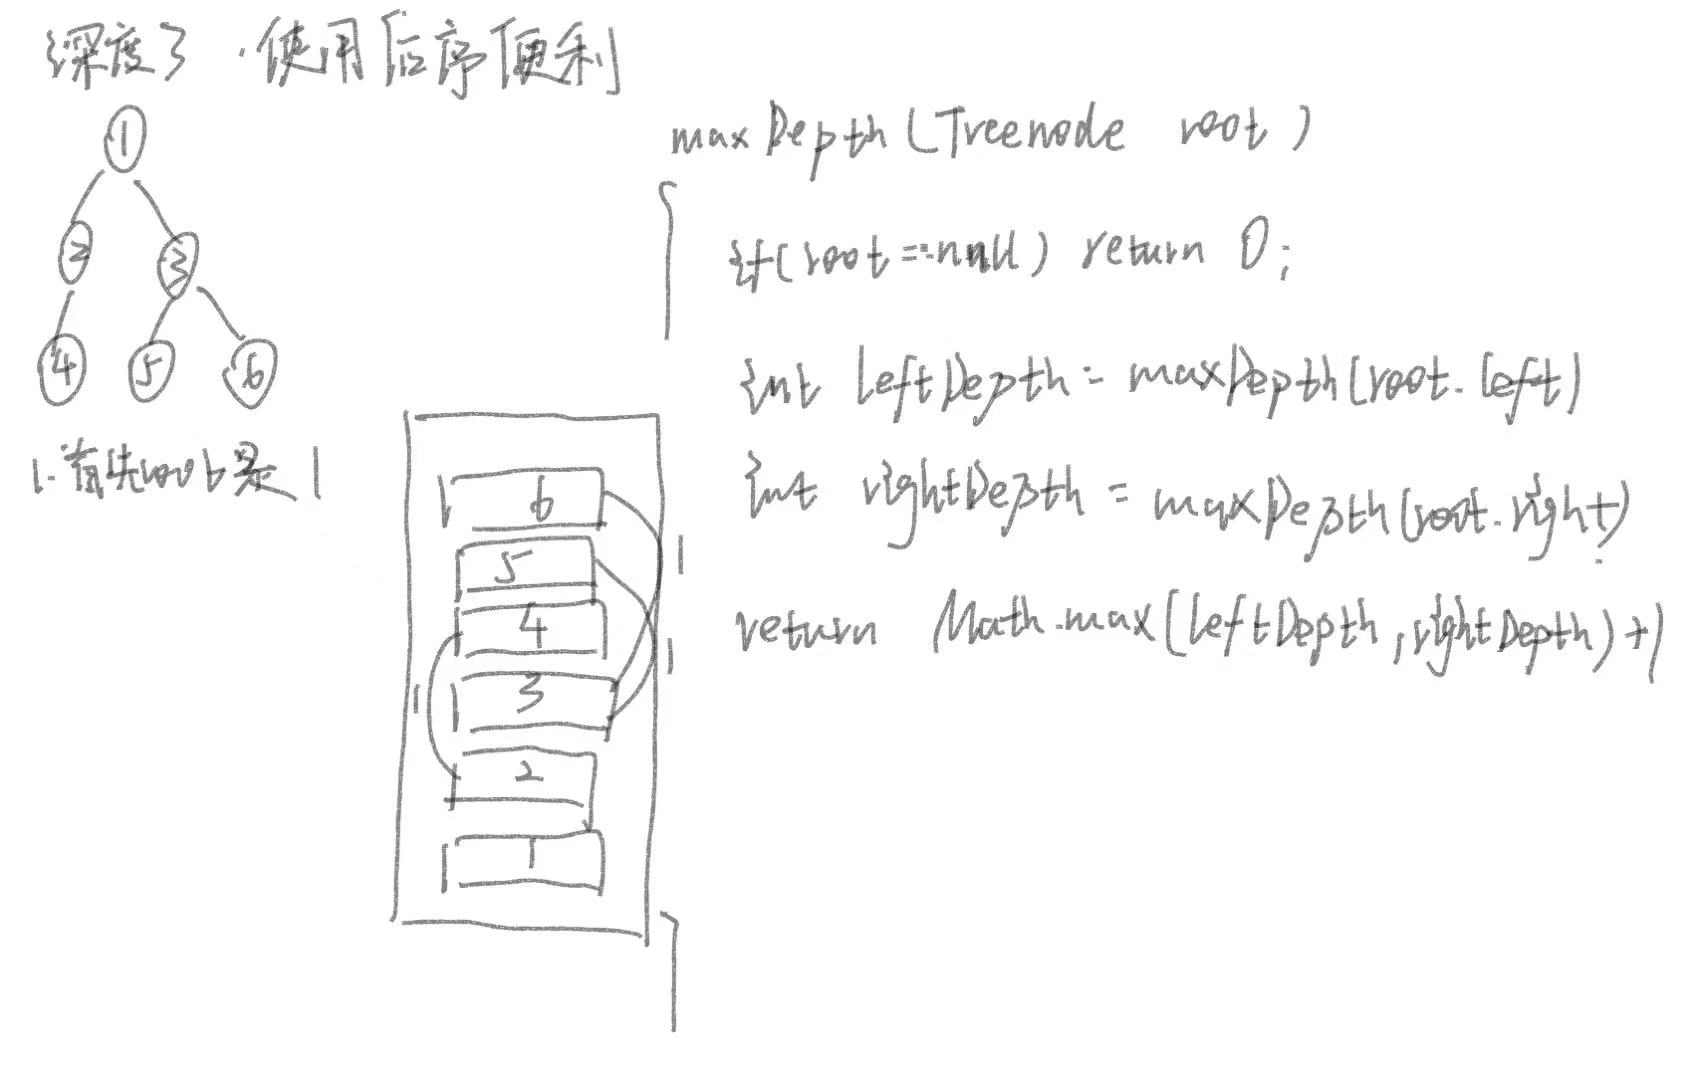 深度3·使用后序便利
1
2
3
4
5
6
1.首先root是1
maxDepth(Treenode root)
{
if(root==null) return 0;
int leftDepth=maxDepth(root.left)
int rightDepth=maxDepth(root.right);
return Math.max(leftDepth,rightDepth)+1
}
6
5
4
3
2
1
1
1
1